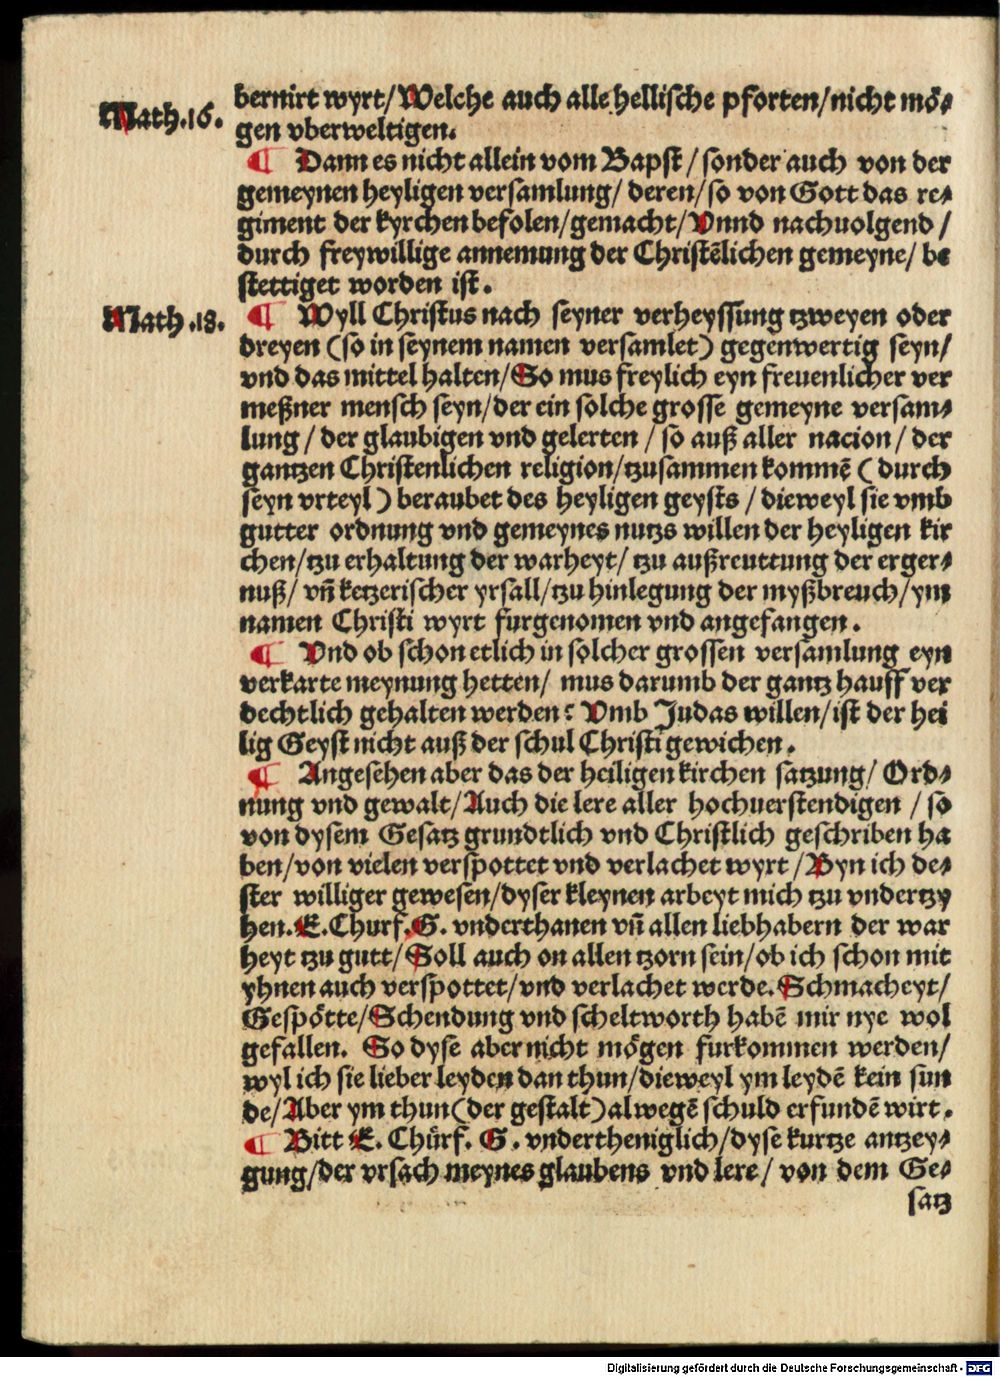 bernirt wyrt/Welche auch alle hellische pforten/nicht mö-
Math.16.
gen vberweltigen.
¶ Dann es nicht allein vom Bapst/sonder auch von der
gemeynen heyligen versamlung/deren/so von Gott das re-
giment der kyrchen befolen/gemacht/Vnnd nachuolgend/
durch freywillige annemung der Christēlichen gemeyne/be
stettiget worden ist.
Math.18.
¶ Wyll Christus nach seyner verheyssung tzweyen oder
dreyen (so in seynem namen versamlet) gegenwertig seyn/
vnd das mittel halten/So mus freylich eyn freuenlicher ver
meßner mensch seyn/der ein solche grosse gemeyne versam-
lung/der glaubigen vnd gelerten/so auß aller nacion/der
gantzen Christenlichen religion/tzusammen kommē (durch
seyn vrteyl) beraubet des heyligen geysts/dieweyl sie vmb
gutter ordnung vnd gemeynes nutzs willen der heyligen kir
chen/tzu erhaltung der warheyt/tzu außreuttung der erger-
nuß/vn̄ ketzerischer yrsall/tzu hinlegung der myßbreuch/ym
namen Christi wyrt furgenomen vnd angefangen.
¶ Vnd ob schon etlich in solcher grossen versamlung eyn
verkarte meynung hetten/mus darumb der gantz hauff ver
dechtlich gehalten werden: Vmb Judas willen/ist der hei
lig Geyst nicht auß der schul Christi gewichen.
¶ Angesehen aber das der heiligen kirchen satzung/Ord-
nung vnd gewalt/Auch die lere aller hochuerstendigen/so
von dysem Gesatz grundtlich vnd Christlich geschriben ha
ben/von vielen verspottet vnd verlachet wyrt/Byn ich de-
ster williger gewesen/dyser kleynen arbeyt mich tzu vndertzy
hen.E.Churf.G. vnderthanen vn̄ allen liebhabern der war
heyt tzu gutt/Soll auch on allen tzorn sein/ob ich schon mit
yhnen auch verspottet/vnd verlachet werde.Schmacheyt/
Gespötte/Schendung vnd scheltworth habē mir nye wol
gefallen. So dyse aber nicht mögen furkommen werden/
wyl ich sie lieber leyden dan thun/dieweyl ym leydē kein sun
de/Aber ym thun(der gestalt)alwegē schuld erfundē wirt.
¶ Bitt E. Chürf. G. vndertheniglich/dyse kurtze antzey-
gung/der vrsach meynes glaubens vnd lere/von dem Ge-
satz
Digitalisierung gefördert durch die Deutsche Forschungsgemeinschaft - DFG